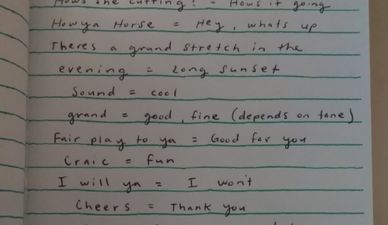 How's the cutting? = How's it going
Howya Horse = Hey, whats up
Theres a grand stretch in the
evening = Long sunset
Sound = cool
grand = good, fine (depends on tone)
Fair play to ya = Good for you
Craic = fun
I will ya = I won't
Cheers = Thank you